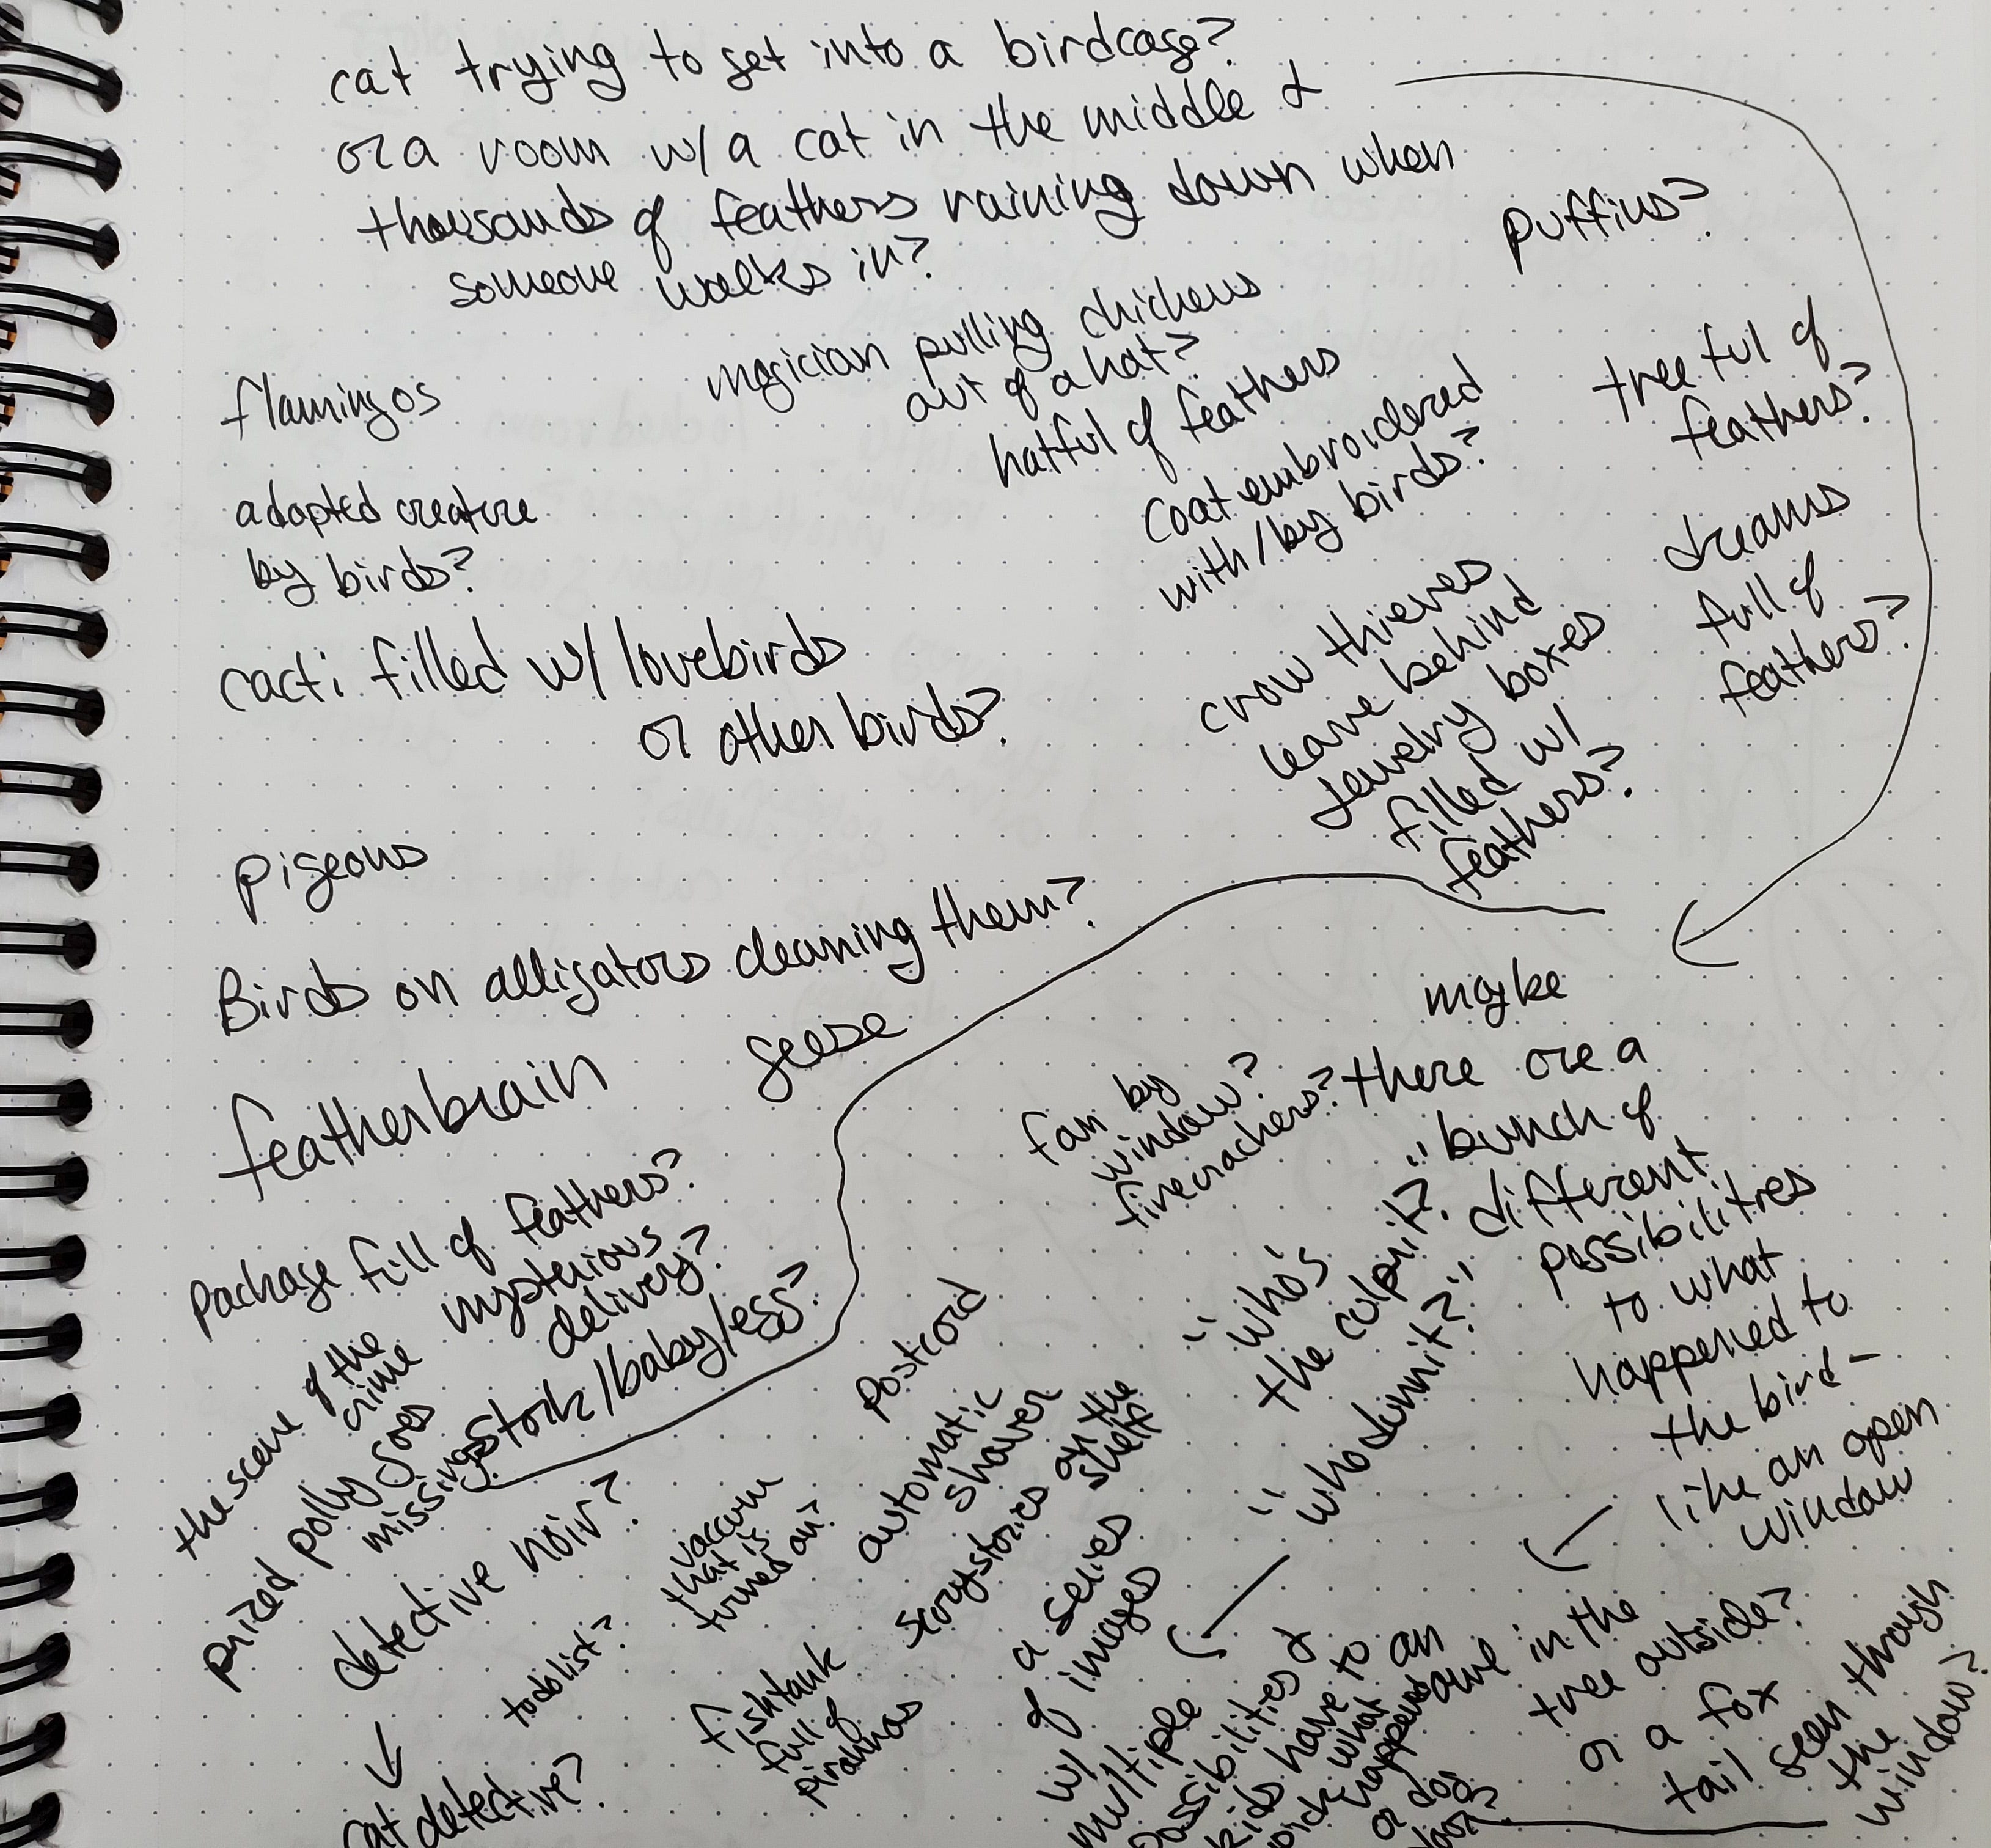 cat trying to get into a birdcage?
or a room w/ a cat in the middle &
thousands of feathers raining down when
someone walks in?
puffins?
magician pulling chickens
out of a hat?
hatful of feathers
flamingos
tree full of
feathers?
coat embroidered
with/by birds?
adopted creature
by birds?
dreams
full of
feathers?
cacti filled w/ lovebirds
or other birds?
crow thieves
leave behind
jewelry boxes
filled w/
feathers?
pigeons
Birds on alligators cleaning them?
geese
featherbrain
maybe
there are a
bunch of
different
possibilities
to what
happened to
the bird-
like an open
window
fan by
window?
firecrackers?
"who's
the culprit?"
"whodunnit?"
package full of feathers?
mysterious
delivery?
stork/baby/egg?
the scene of the
crime
prized polly goes
missing?
detective noir?
cat detective?
todolist?
vaccum
that is
turned on?
postcard
automatic
shaver
scary stories on the
shelf
fishtank
full of
pirahnas
a series
of images
w/
multiple
possibilities &
kids have to
pick what
happened
an
owl in the
tree outside?
or a fox
tail seen through
the
window?
or dog
door?